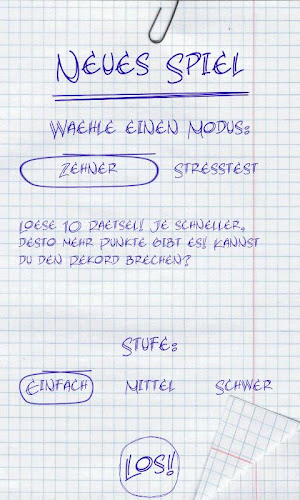 Neues Spiel
Waehle einen Modus:
Zehner Stresstest
Loese 10 Raetsel! Je schneller,
desto mehr Punkte gibt es! Kannst
du den Rekord brechen?
Stufe:
Einfach Mittel Schwer
Los!